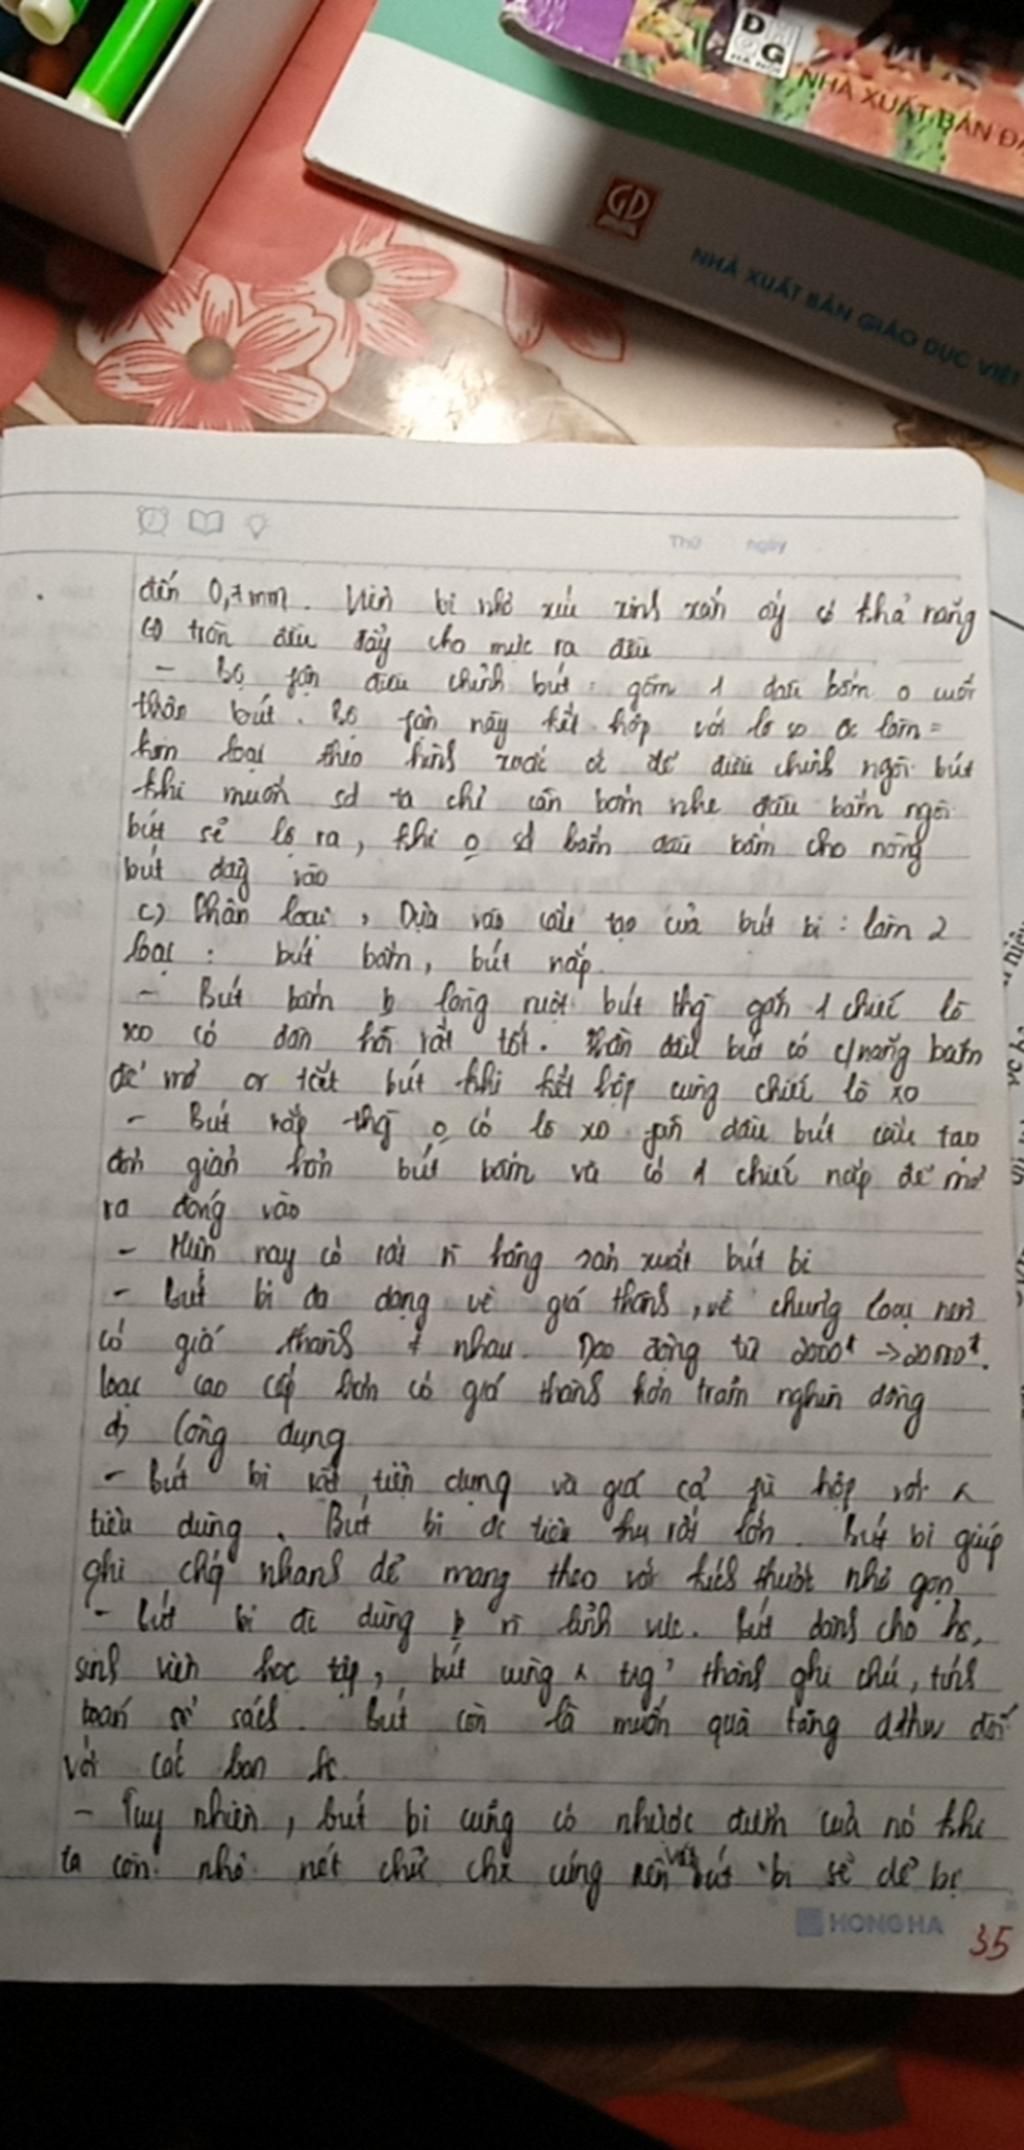 D
G
HÀ NỘI
NHÀ XUẤT BẢN ĐẠ
GD
NHÀ XUẤT BẢN GIÁO DỤC VIỆT
Thứ ngày
đến 0,7mm. Viên bi nhỏ xíu xinh xắn ấy có khả năng
trơn đều đẩy cho mực ra đều
- Bộ fận điều chỉnh bút: gồm 1 đầu bấm o cuối
thân bút. Bộ fận này kết hợp với lò so đc làm =
kim loại theo hình xoắn ốc để điều chỉnh ngòi bút
khi muốn sd ta chỉ cần bấm nhẹ đầu bấm ngòi
bút sẽ lò ra, khi o sd bấm đầu bấm cho nòng
bút vào
c) Phân loại, Dựa vào cấu tạo của bút bi: làm 2
loại: bút bấm, bút nắp.
- Bút bấm lòng ruột bút thg gắn 1 chiếc lò
xo có đàn hồi rất tốt. đầu bút có c/năng bấm
để mở or tắt bút khi kết hợp cùng chiếc lò xo
- Bút nắp thg o có lò xo gắn đầu bút cấu tạo
đơn giản hơn bút bấm và có 1 chiếc nắp để mở
ra đóng vào
- Hiện nay có rất n hãng sản xuất bút bi
- Bút bi đa dạng về giá thành, về chủng loại nên
có giá thành ≠ nhau. Dao động từ 2000đ → 20000đ.
loại cao cấp hơn có giá thành hơn trăm nghìn đồng
d) Công dụng
- Bút bi rất tiện dụng và giá cả fù hợp với
tiêu dùng. Bút bi đc tiêu thụ rất lớn. Bút bi giúp
ghi chép nhanh dễ mang theo với kích thước nhỏ gọn
- Bút bi đc dùng n lãnh vực. Bút dành cho hs,
sinh viên học tập, bút cùng thành ghi chú, tính
toán sổ sách. Bút còn là muốn quà tặng đối
với các bạn hs.
- Tuy nhiên, bút bi cũng có nhược điểm của nó khi
ta còn nhỏ nét chữ cứng nên bút bi sẽ dễ bị
HONG HA
35